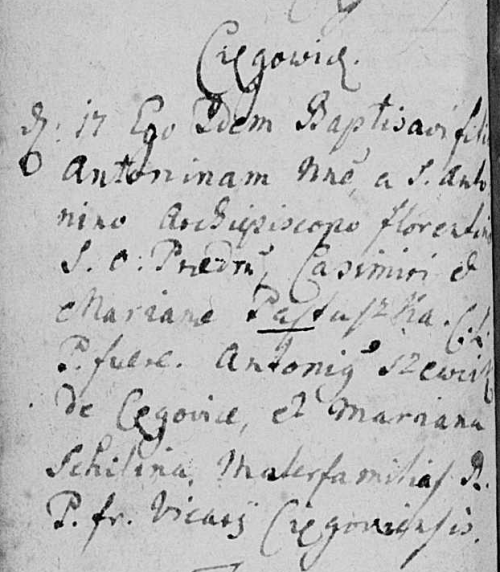 Cięgowice.
D. 17 Ego Idem Baptisavi fili
Antoninam Nne, a S. Anto
nino Archiepiscopo florentin
S. O. Prædm, Casimiri &
Mariane Pastuszka. C. L.
P. fuere. Antonig9 szewcik
de Cęgovice, et Mariana
Schilina, Materfamilias R.
P. fr. Vicarij Cięgoviensis.